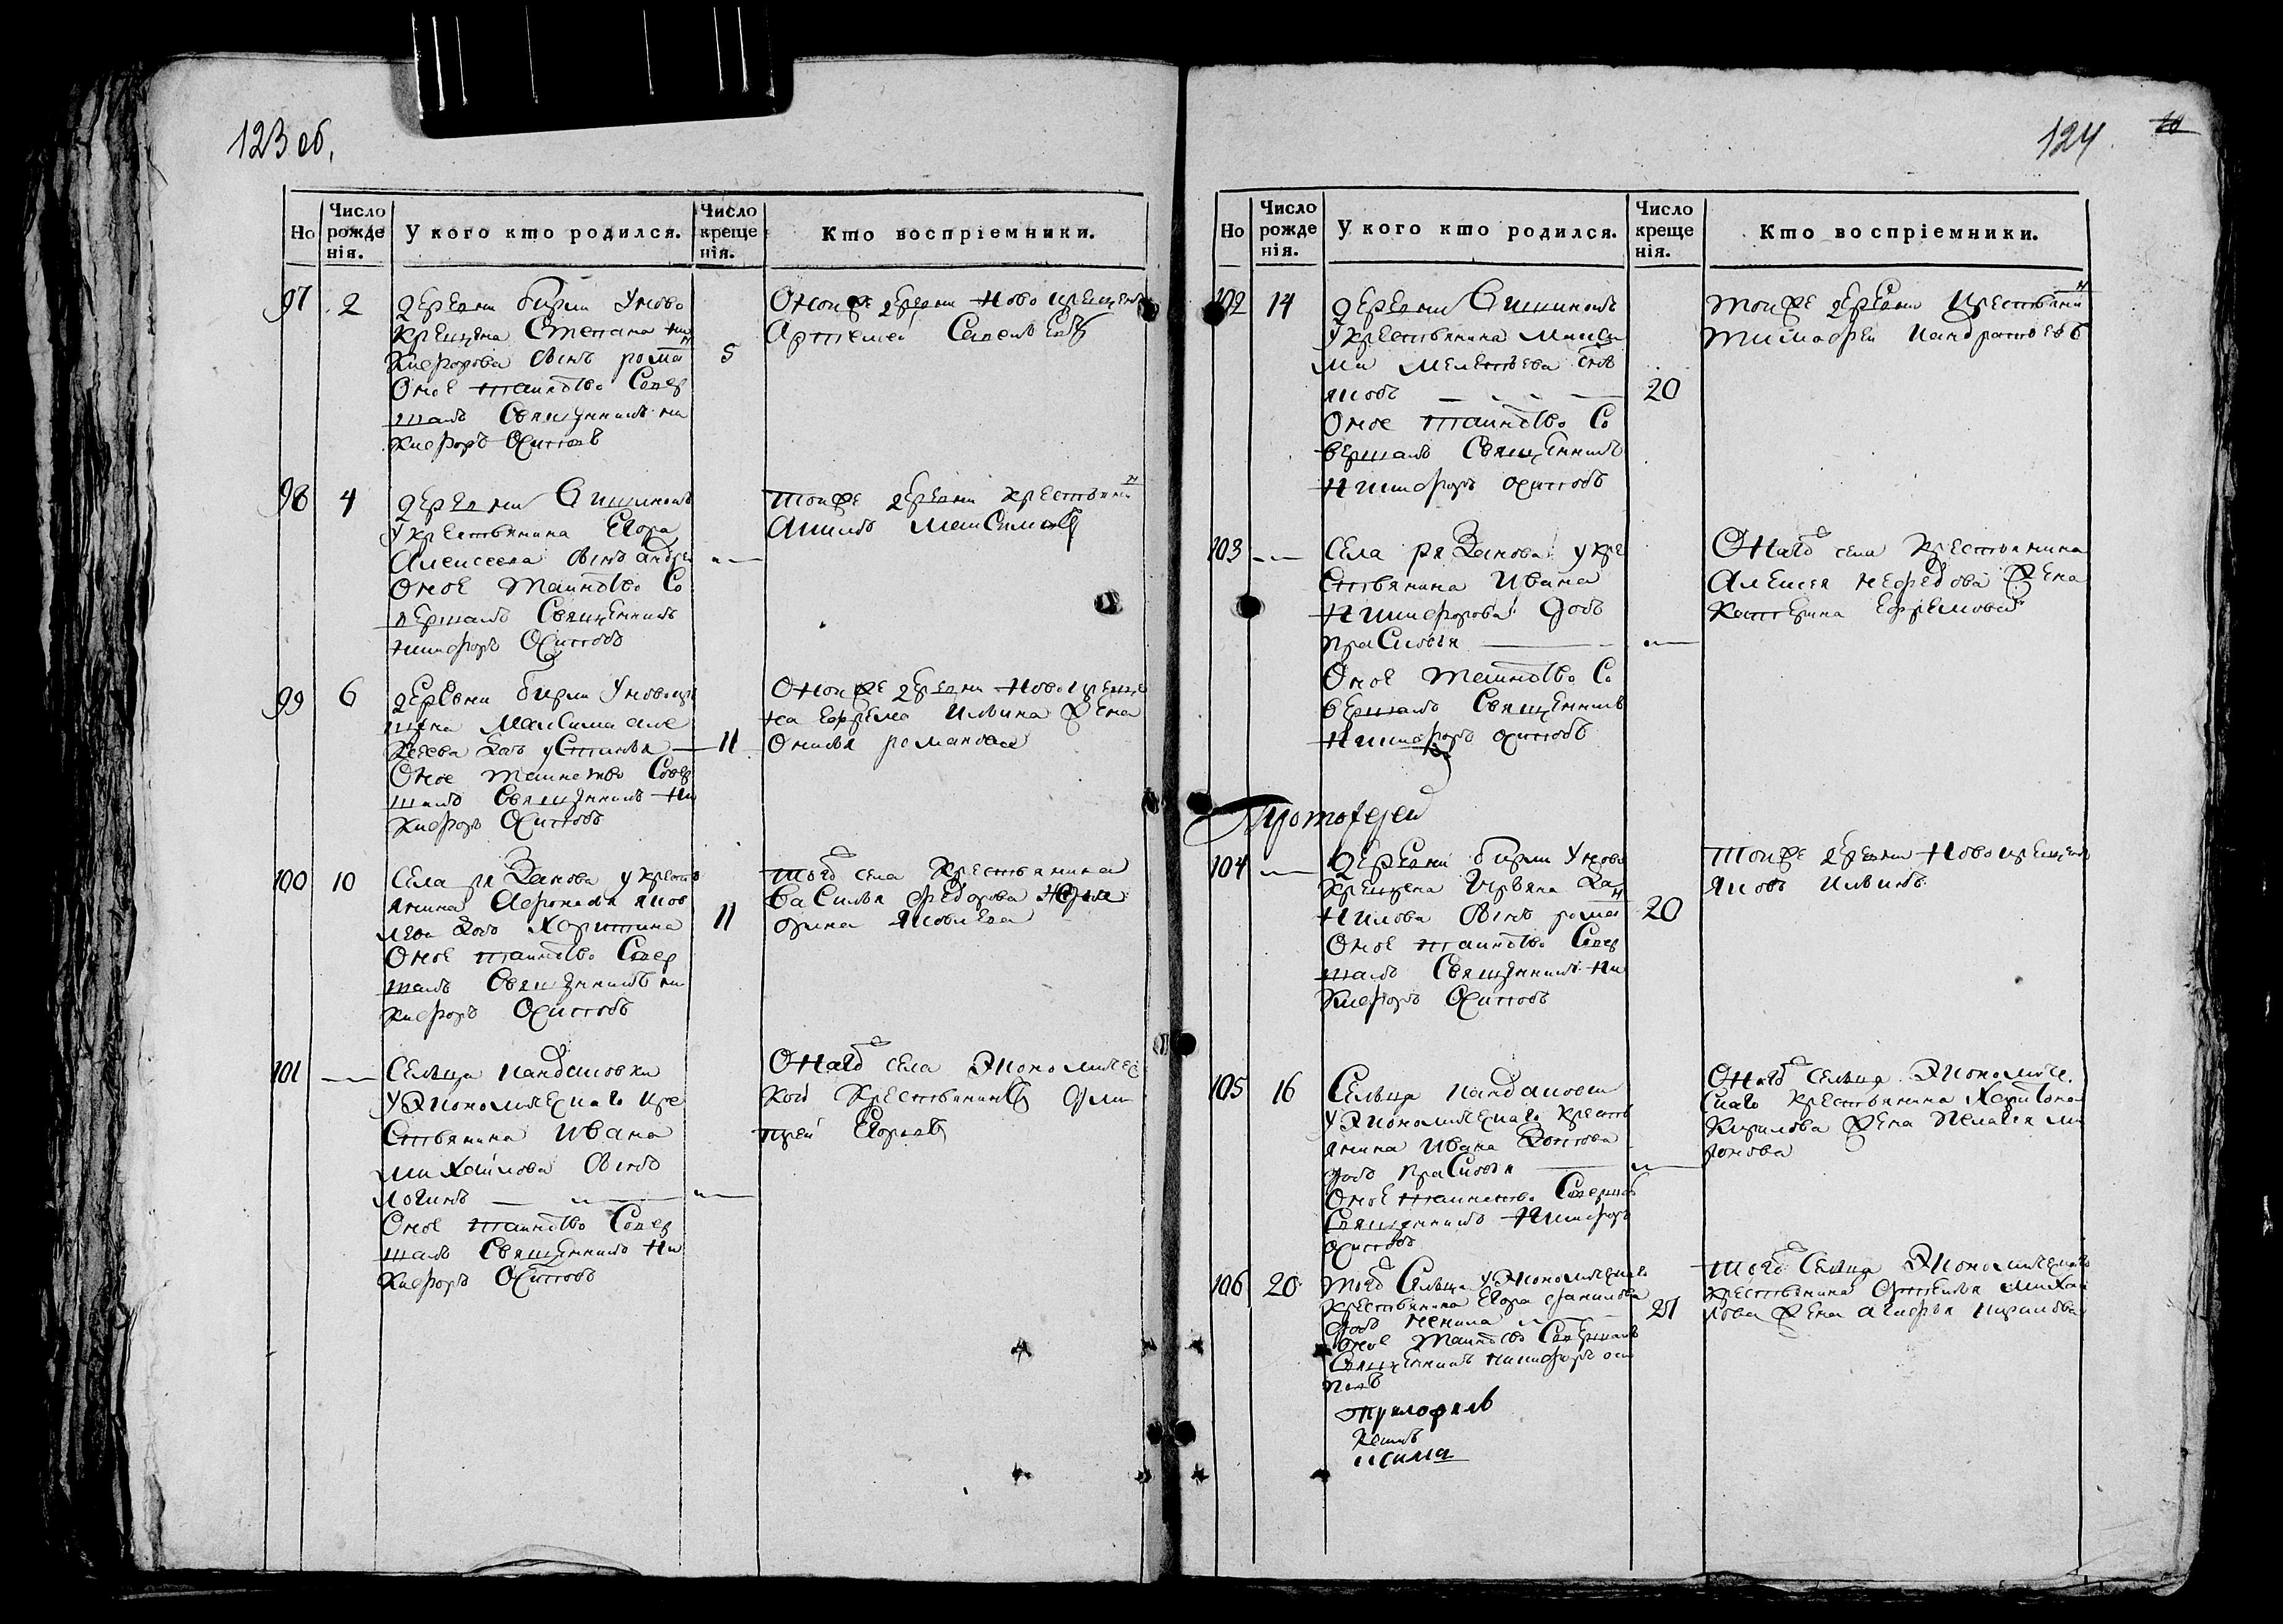 123 об.
Но
Число рожденія.
У кого кто родился.
Число крещенія.
Кто воспріемники.
97
2
деревни бирли Уново
крещена Степана ни
кифорова сынъ рома н
5
Оное таинство Совер
шалъ Священникъ ни
кифоръ Осиповъ
Оной же деревни Новокрещенъ
Артемей Савельевъ
98
4
деревни
Укрестьянина Егора
Алексеева сынъ андрей
Оное таинство Со
вершалъ Священникъ
никифоръ Осиповъ
тойже деревни крестьянинъ
Максимовъ
99
6
деревни бирли Уновокре
щена Максима але
ксеева дочь устинья
11
Оное таинство Совер
шалъ Священникъ Ни
кифоръ Осиповъ
Оной же деревни Новокреще
на Ефрема Ильина жена
романова
100
10
Села рязанова у кресть
янина Афонасья яков
лева дочь Харитина
11
Оное таинство Совер
шалъ Священникъ ни
кифоръ Осиповъ
того села крестьянина
Василья Федорова жена
Яковлева
101
Сельца кандаковки
У Экономическаго кре
стьянина Ивана
михайлова сынъ
логинъ
Оное таинство Совер
шалъ Священникъ Ни
кифоръ Осиповъ
Онаго села Экономичес
кой крестьянинъ Дми
трей Егоровъ
124
Но
Число рожденія.
У кого кто родился.
Число крещенія.
Кто воспріемники.
102
14
деревни
Укрестьянина Макси
ма Мелентьева сынъ
яковъ
20
Оное таинство Со
вершалъ Священникъ
Никифоръ осиповъ
тойже деревни крестьянинъ
Тимофей кандратьевъ
103
Села рязанова у кре
стьянина Ивана
Никифорова дочь
прасковья
Оное таинство Со
вершалъ Священникъ
Никифоръ осиповъ
Онаго села крестьянина
Алексея нефедова жена
Катерина Ефремова
Протоіерей
104
деревни бирли Уново
крещена
сынъ рома н
20
Оное таинство Совер
шалъ Священникъ Ни
кифоръ Осиповъ
тойже деревни Новокрещенъ
яковъ Ильинъ
105
16
Сельца кандаковки
У Экономическаго кресть
янина Ивана
дочь прасковья
Оное таинство Совершалъ
Священникъ Никифоръ
осиповъ
Онаго Сельца Экономиче
скаго крестьянина Харитона
Кирилова жена Пелагея ми
ронова
106
20
того Сельца У Экономическаго
крестьянина Егора данилова
дочь
21
Оное таинство Совершалъ
Священникъ никифоръ оси
повъ
того Сельца Экономическаго
крестьянина михай
лова жена кирилова